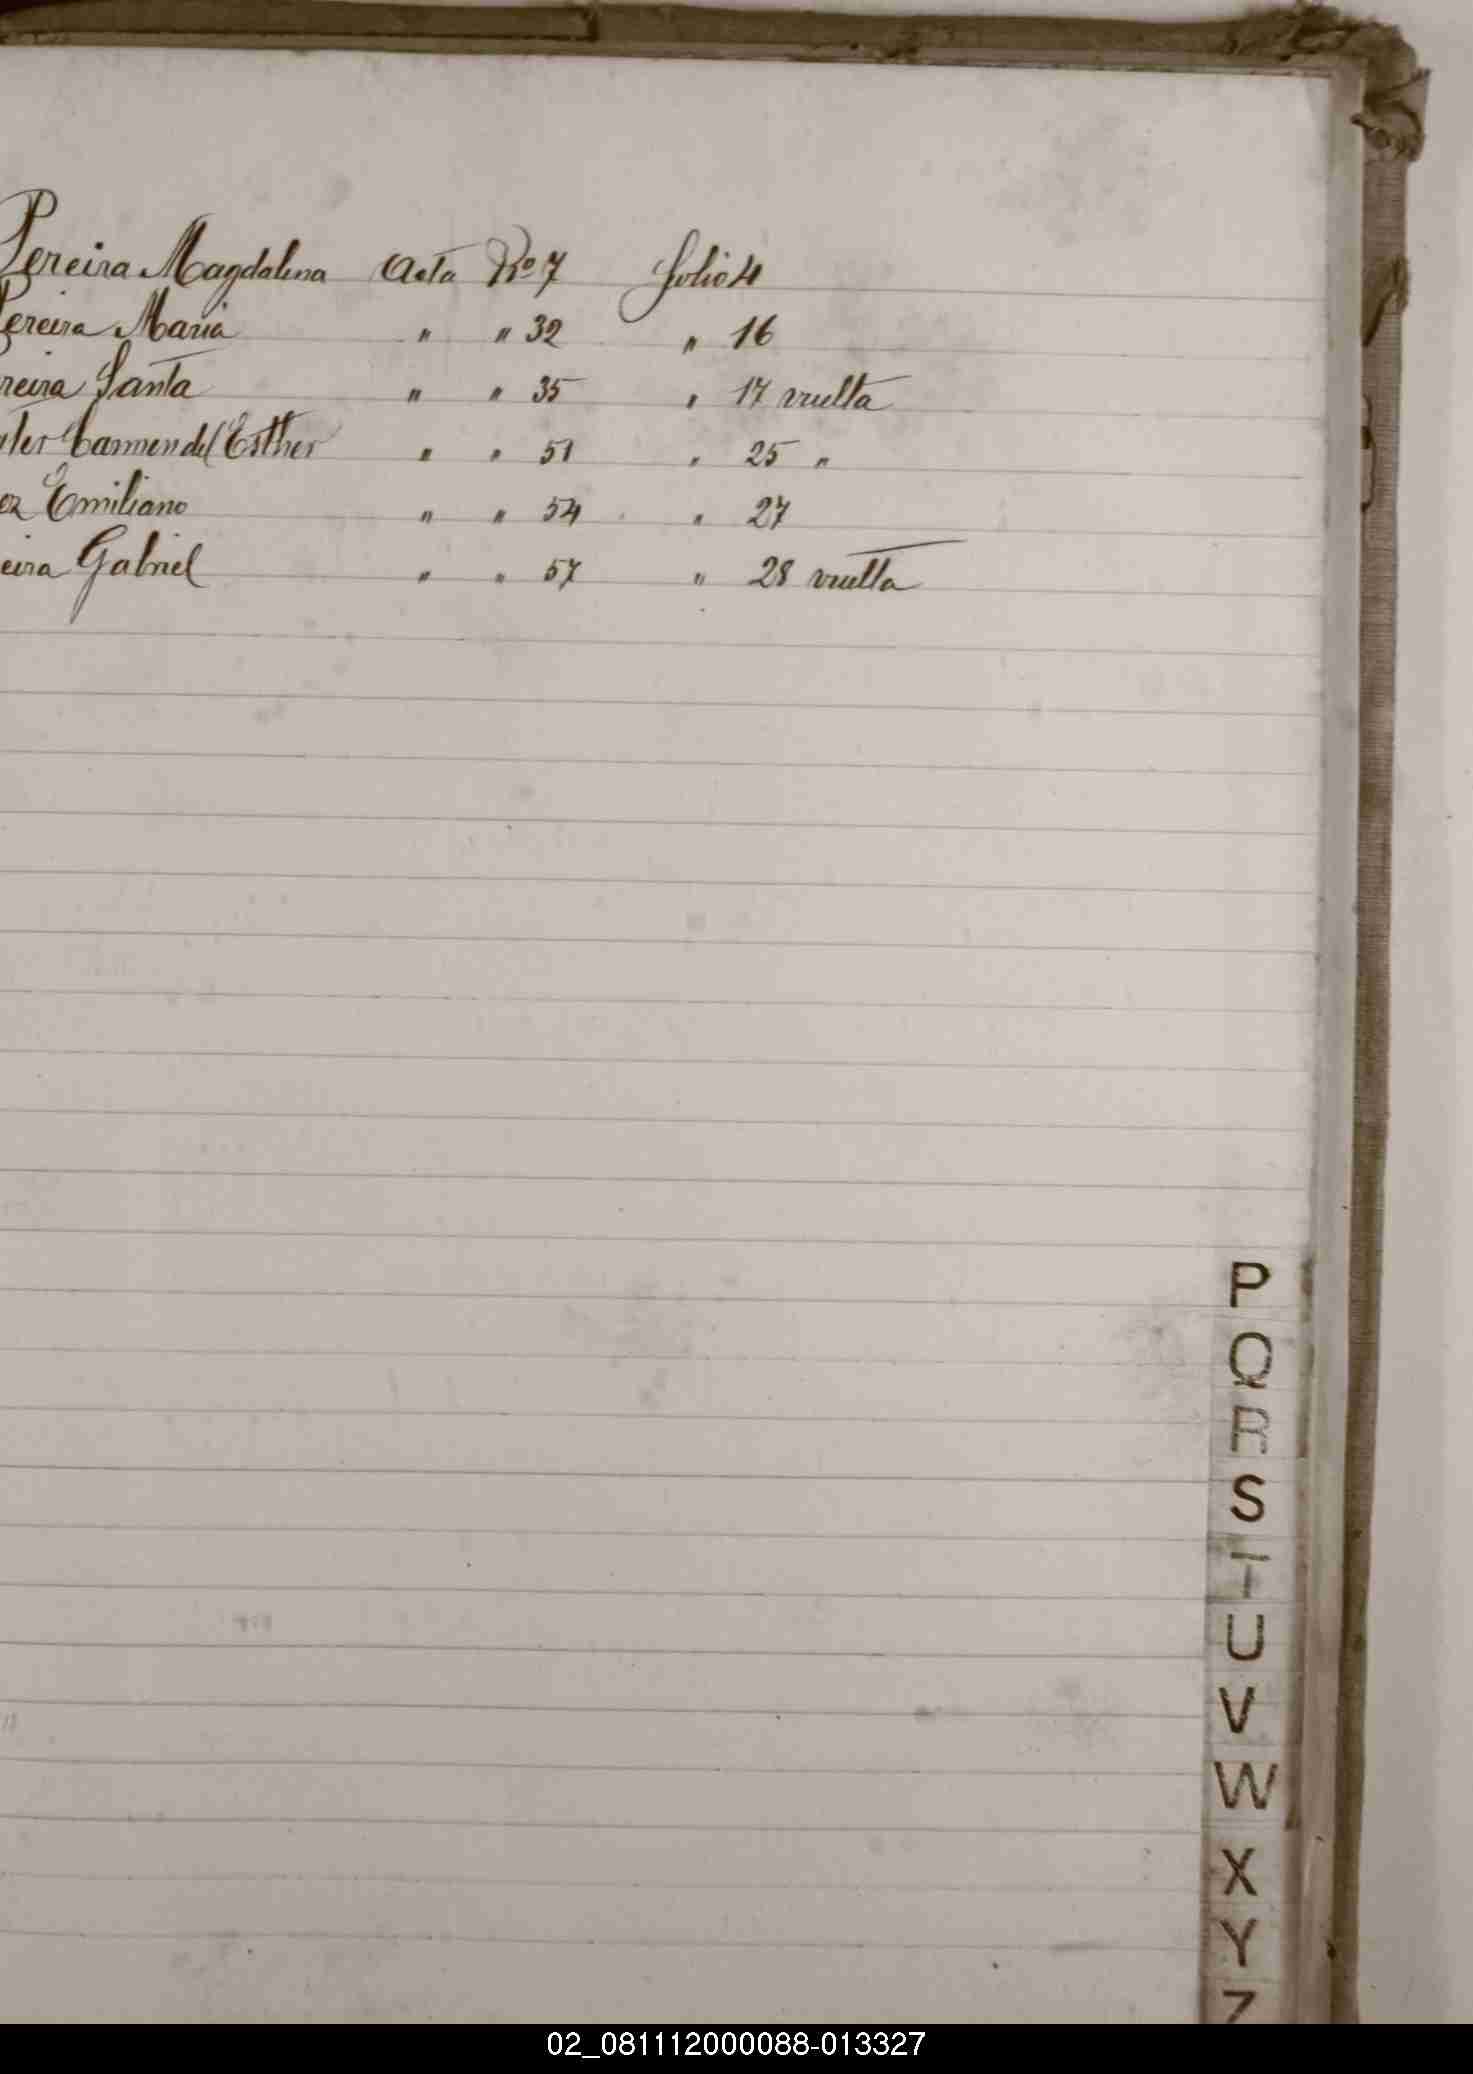 Pereira Magdalena Acta No 7 folio 4
Pereira Maria " " 32 " 16
reira Santa " " 35 " 17 vuelta
Carmen del Esther " " 51 " 25 "
ez Emiliano " " 54 " 27
eira Gabriel " " 57 " 28 vuelta
P
Q
R
S
T
U
V
W
X
Y
Z
02_081112000088-013327